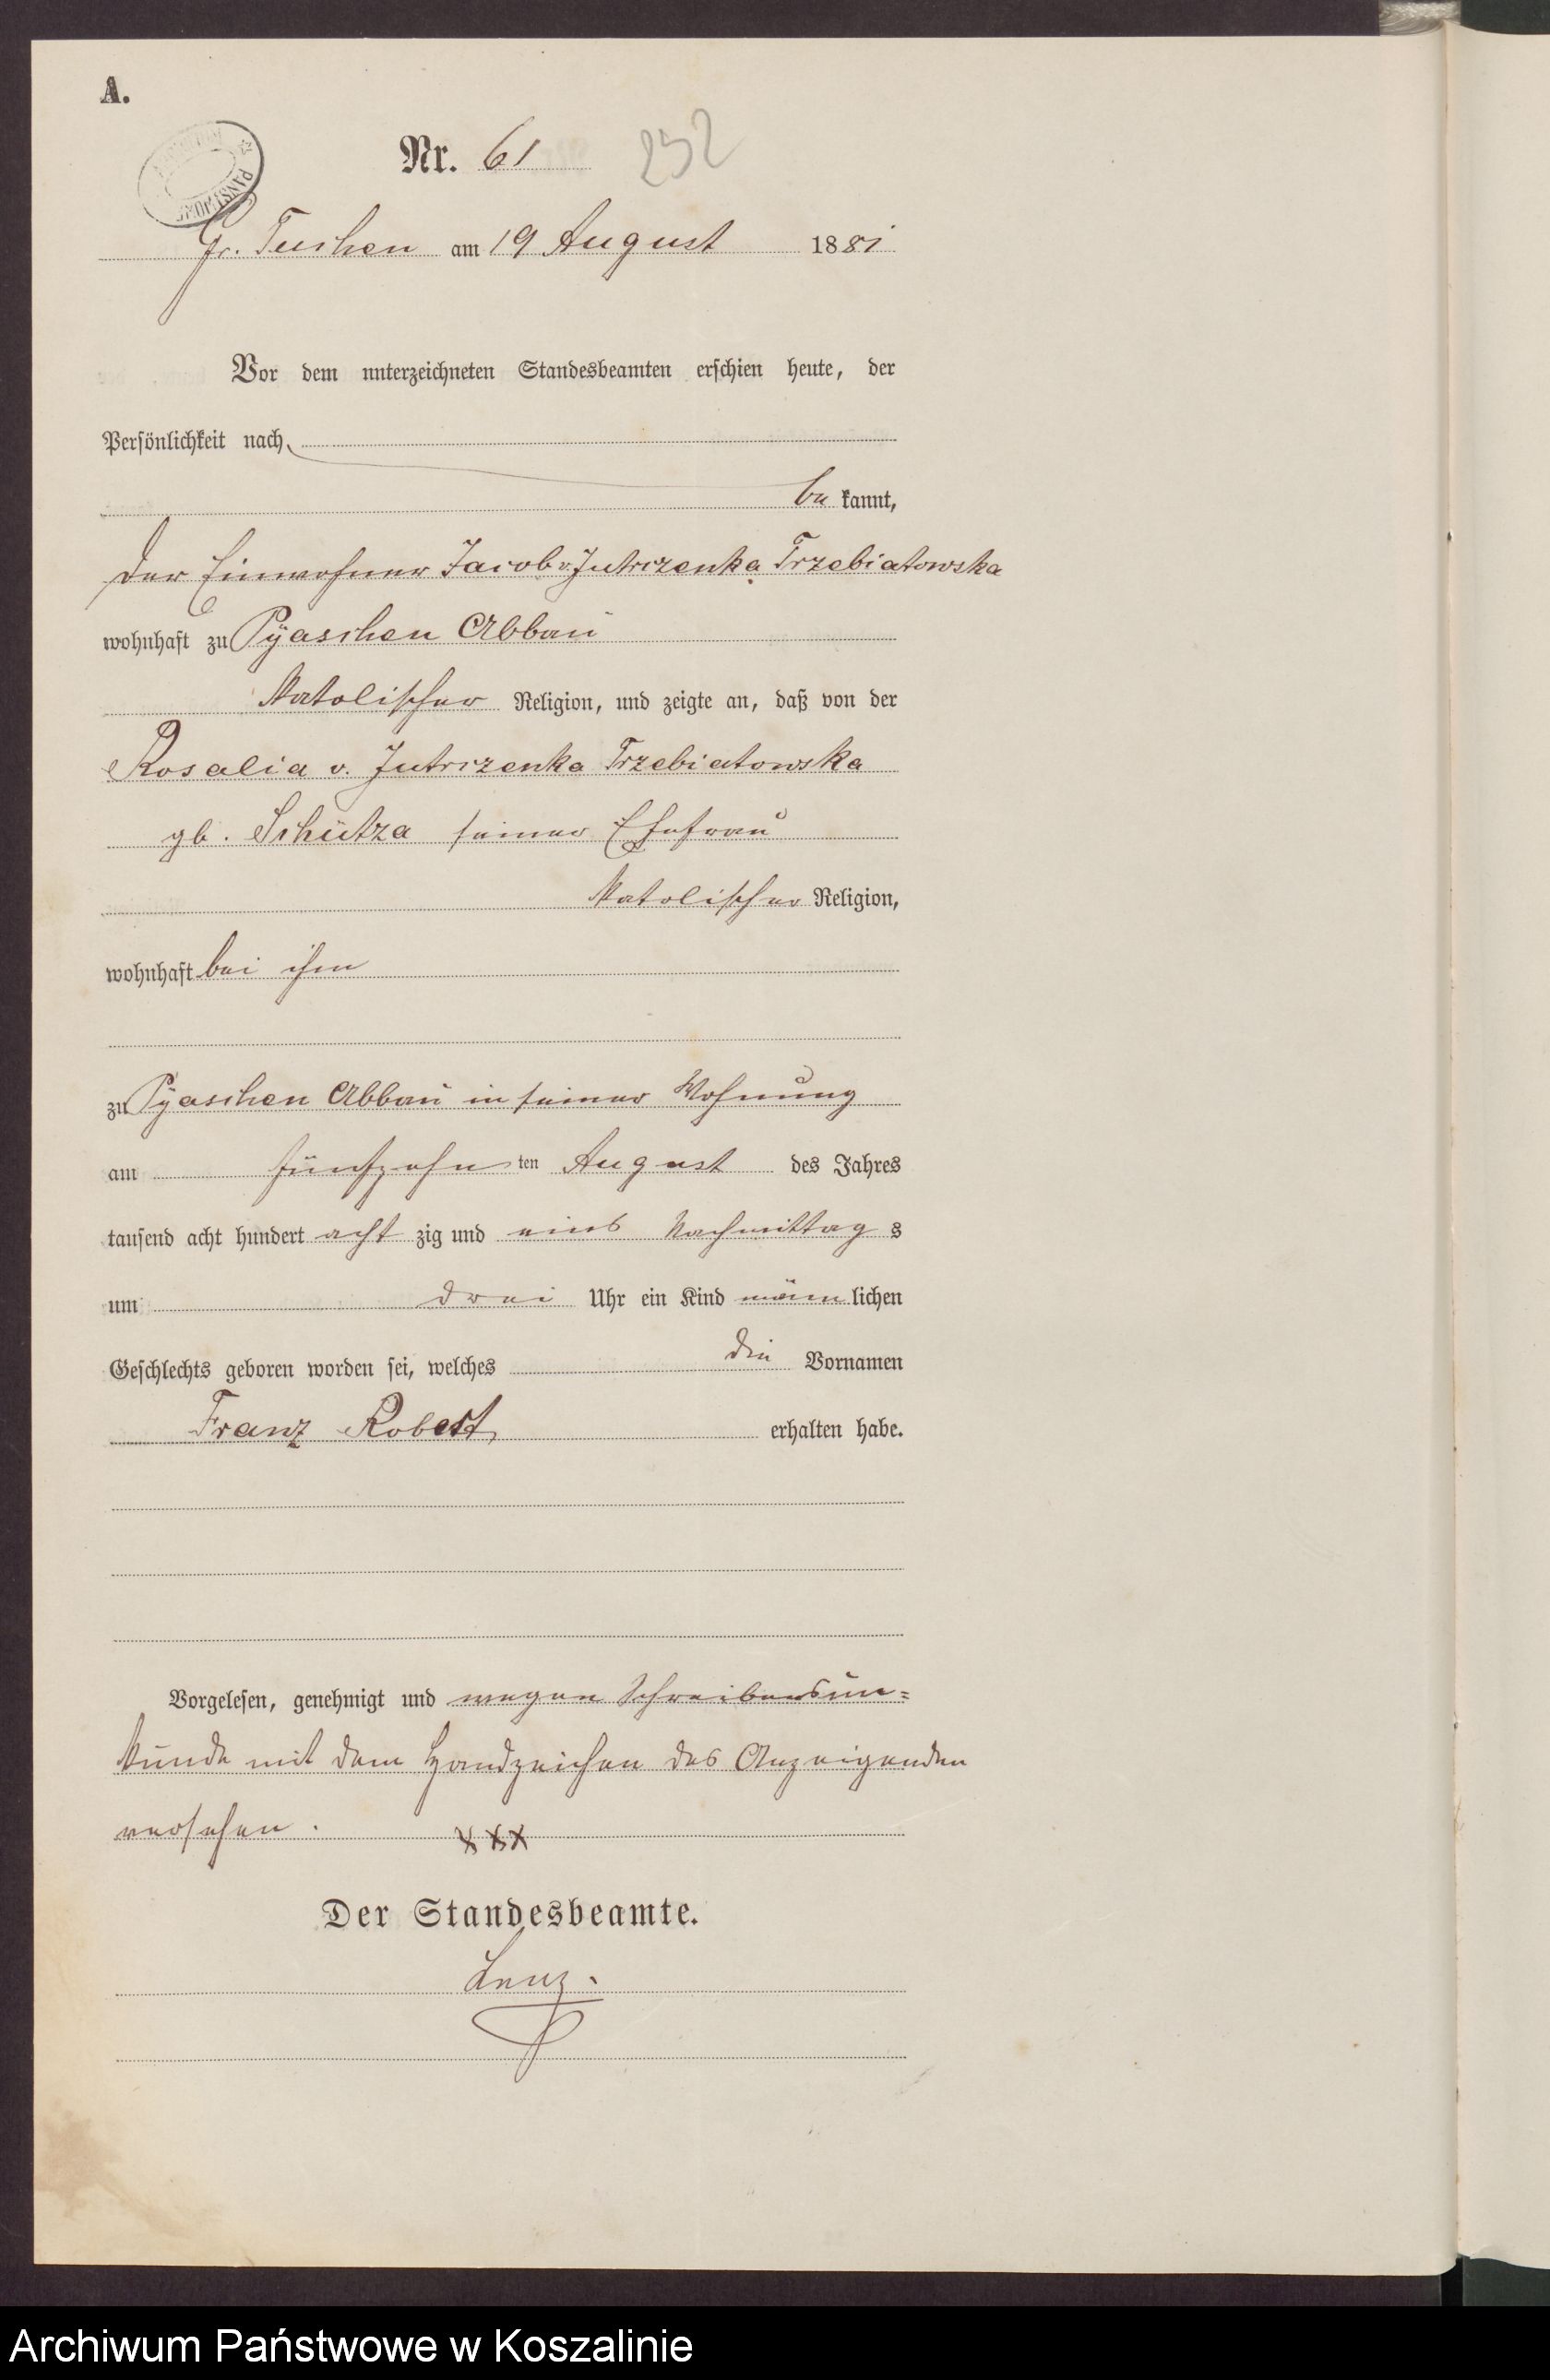 A.
Nr. 61
252
Gr. Tuchen am 19 August 1881
Vor dem unterzeichneten Standesbeamten erschien heute, der
Persönlichkeit nach
be kannt,
der Einwohner Jacob v. Jutrczenka Trzebiatowska
wohnhaft zu Pÿaschen Abbau
katolischer Religion, und zeigte an, daß von der
Rosalia v. Jutrczenka Trzebiatowska
gb. Schütza seiner Ehefrau
katolischer Religion,
wohnhaft bei ihm
zu Pÿaschen Abbau in seiner Wohnung
am fünfzehn ten August des Jahres
tausend acht hundert acht zig und eins Nachmittag s
um drei Uhr ein Kind männ lichen
Geschlechts geboren worden sei, welches die Vornamen
Franz Robert erhalten habe.
Vorgelesen, genehmigt und wegen Schreibensun=
kunde mit dem Handzeichen des Anzeigenden
versehen. XXX
Der Standesbeamte.
Lenz.
Archiwum Państwowe w Koszalinie